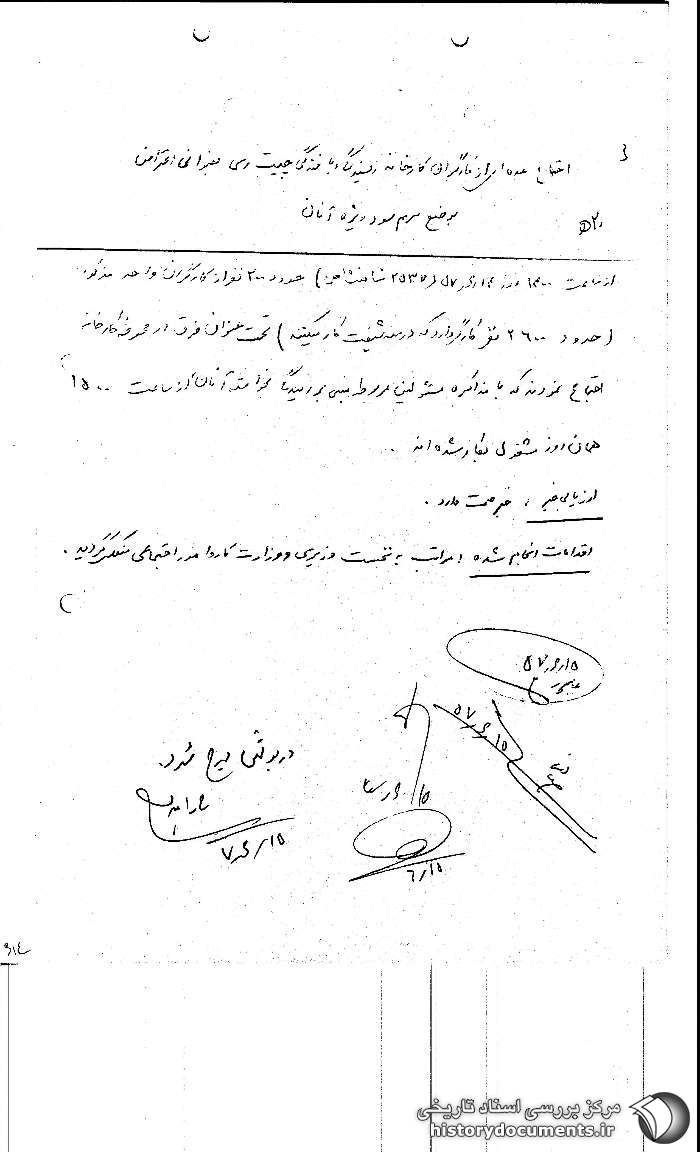 اجتماع عده ای از کارگران کارخانه ریسندگی و بافندگی چیت ری مبنی اعتراض
بوضع سهم سود ویژه آنان
۲۰ ه
از ساعت ۱۴۰۰ روز (۲۵۳۷ شاهنشاهی) حدود ۲۰۰ نفر از کارگران واحد مذکور
(حدود ۲۶۰۰ نفر کارگر دارد که در سه شیفت کار میکنند) تحت عنوان فوق در محوطه کارخانه
اجتماع نمودند که با مذاکره مسئولین مربوطه مبنی بر رسیدگی بخواسته آنان از ساعت ۱۵۰۰
همان روز مشغول بکار شده اند.
ارزیابی خبر : خبر صحت دارد.
اقدامات انجام شده : مراتب به نخست وزیری و وزارت کار و امور اجتماعی منعکس گردید.
در بولتن درج شود.
۶/۱۵
۳۱۴
مرکز بررسی اسناد تاریخی
historydocuments.ir